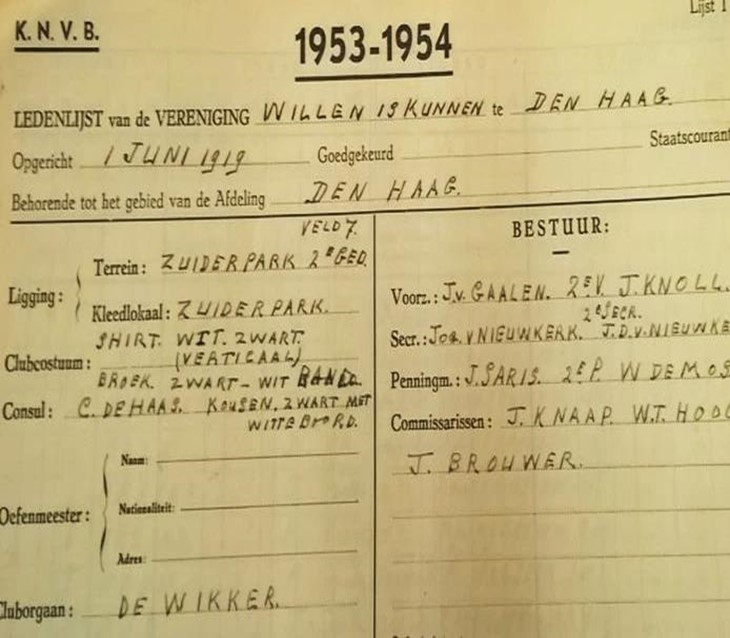 Lijst 1
K. N. V. B.
1953-1954
LEDENLIJST van de VERENIGING WILLEN IS KUNNEN te DEN HAAG.
Opgericht 1 JUNI 1919 Goedgekeurd Staatscourant
Behorende tot het gebied van de Afdeling DEN HAAG.
VELD 7.
Ligging: Terrein: ZUIDERPARK 2E GED.
Kleedlokaal: ZUIDERPARK.
SHIRT. WIT. ZWART.
Clubcostuum: (VERTICAAL)
BROEK. ZWART - WIT BAND.
Consul: C. DE HAAS. KOUSEN. ZWART MET
WITTE BOORD.
Oefenmeester: Naam:
Nationaliteit:
Adres:
Cluborgaan: DE WIKKER.
BESTUUR:
Voorz.: J. v. GAALEN. 2E V. J. KNOLL.
2E SECR.
Secr.: Joa. v NIEUWKERK. J. D. v. NIEUWKE
Penningm.: J. SARIS. 2E P. W DE MOS
Commissarissen: J. KNAAP. W. T. HOO
J. BROUWER.